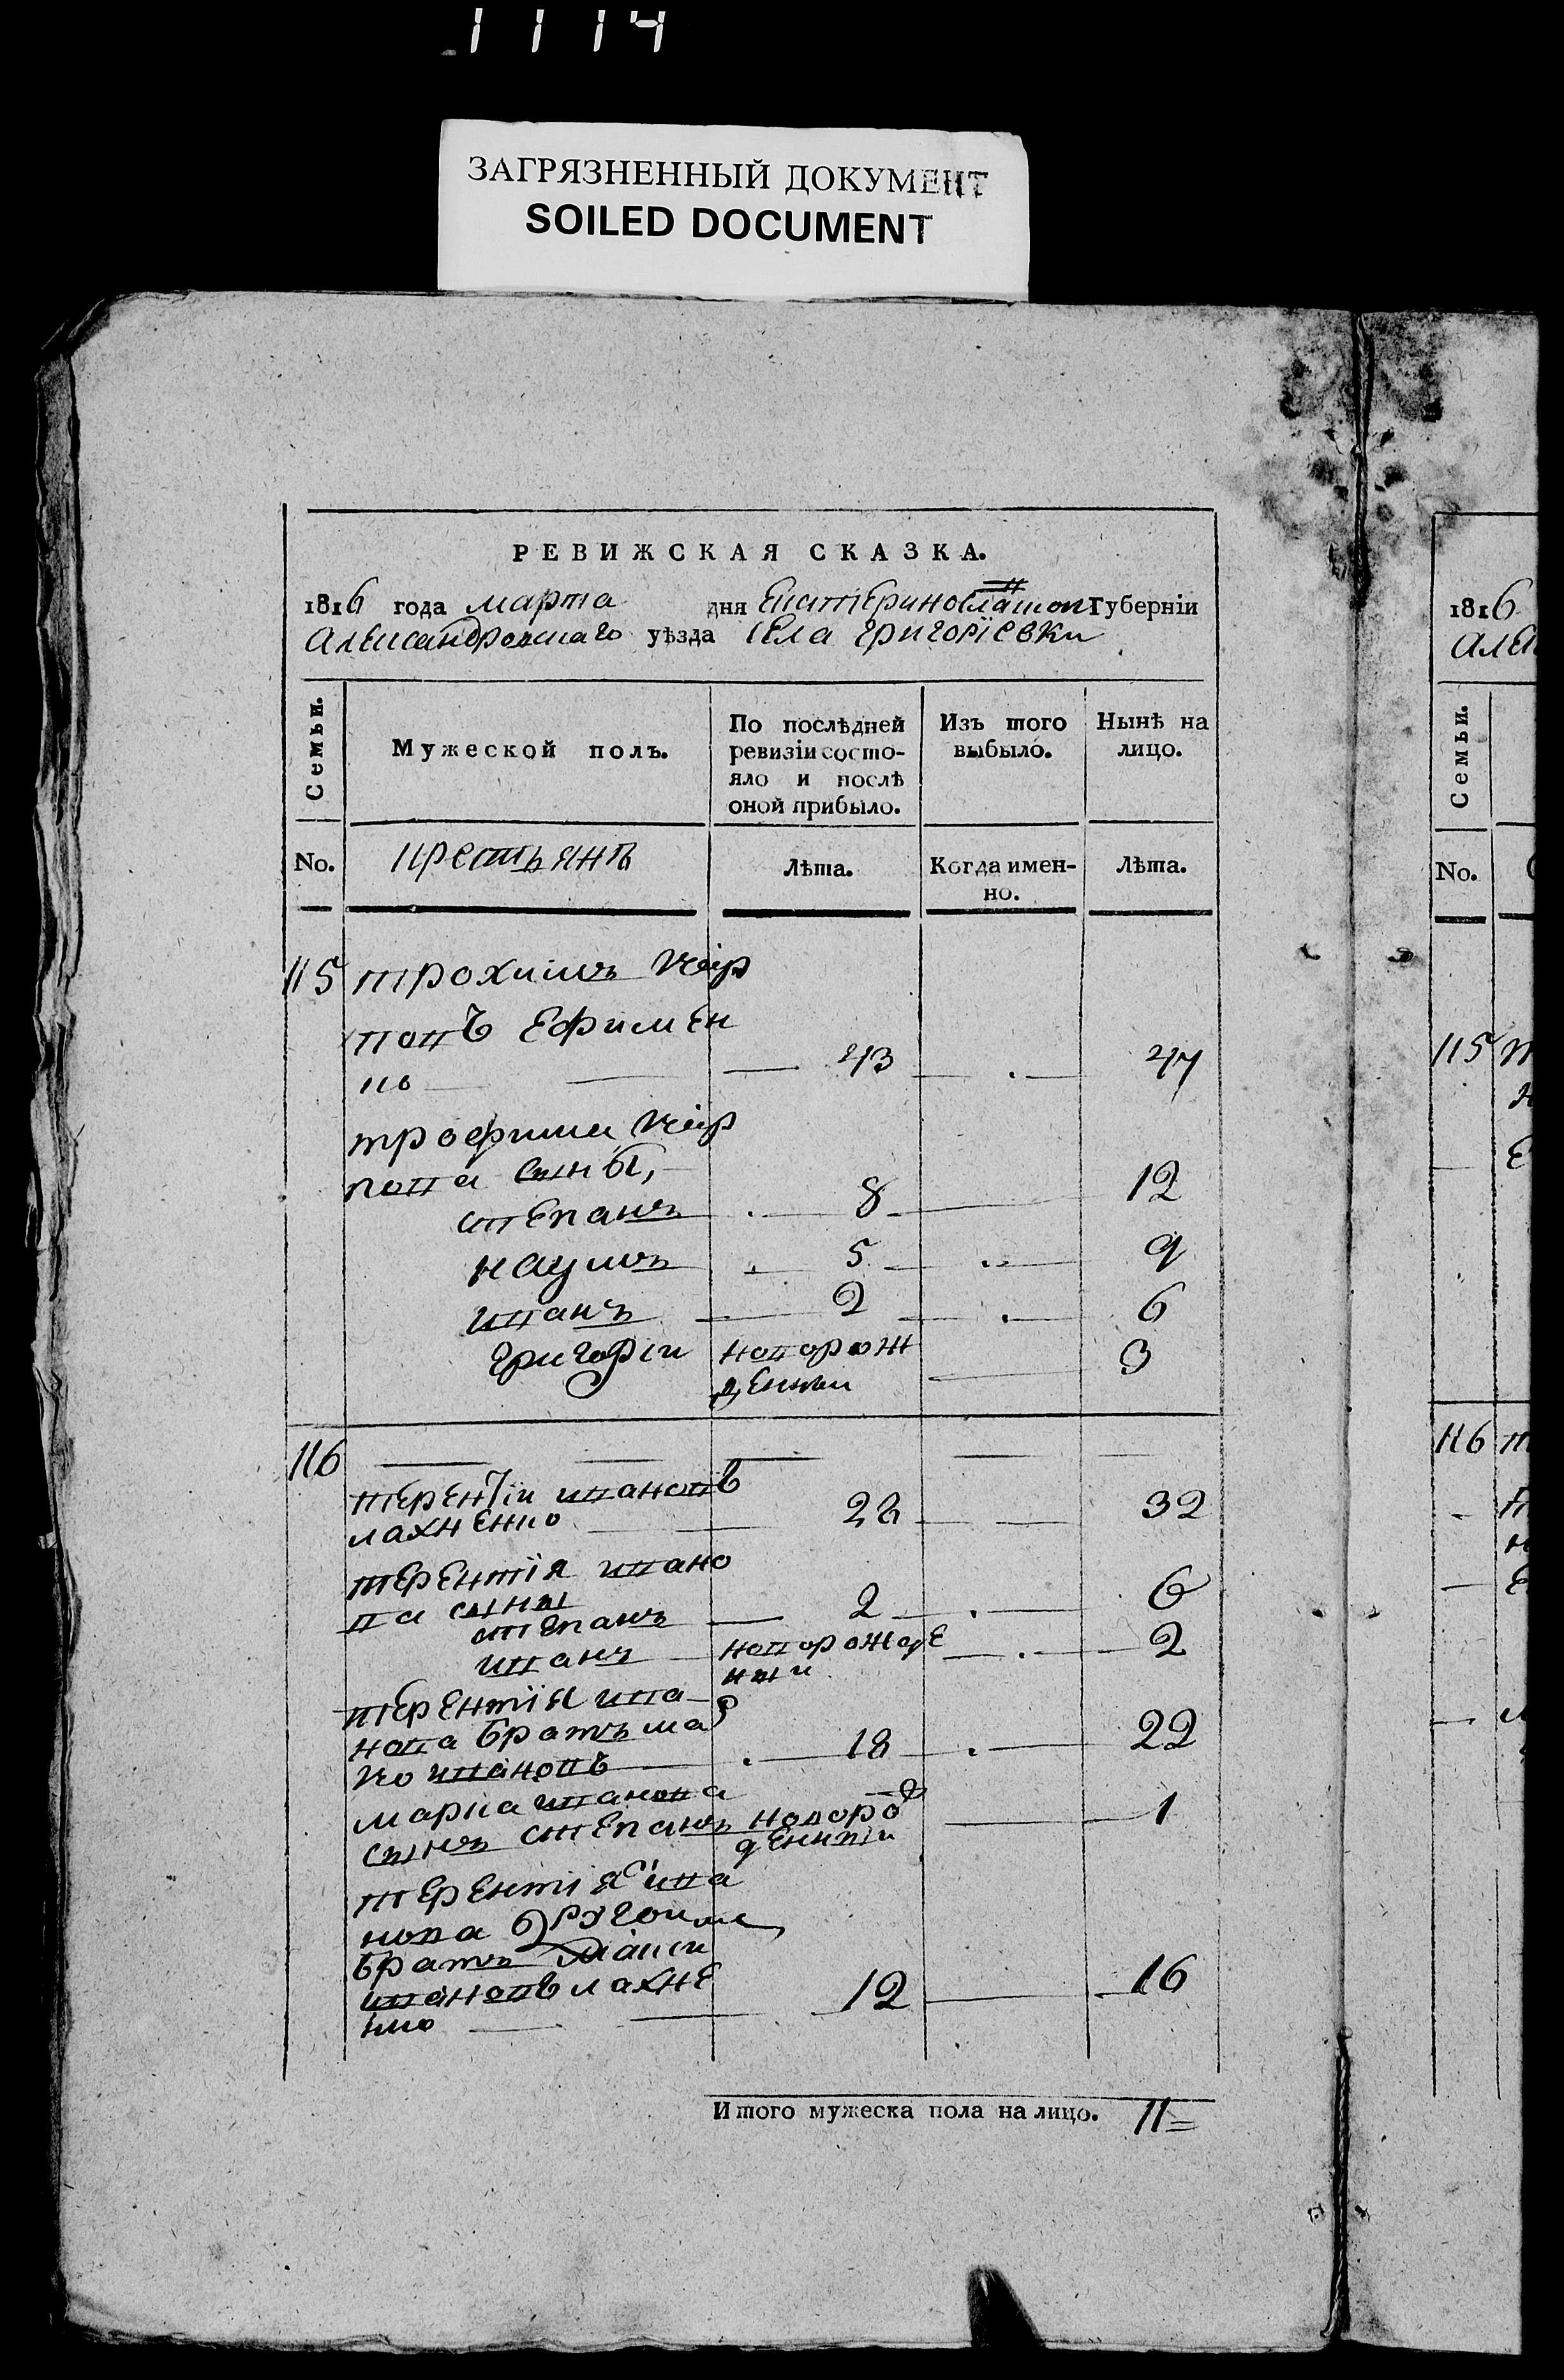 1114
ЗАГРЯЗНЕННЫЙ ДОКУМЕНТ
SOILED DOCUMENT
РЕВИЖСКАЯ СКАЗКА.
1816 года марта дня Екатеринославской Губернїи
Александровскаго уѣзда села григорїевки
Семьи.
Мужеской полъ.
По послѣдней
ревизїи состо-
яло и послѣ
оной прибыло.
Изъ того
выбыло.
Нынѣ на
лицо.
No.
крестьянъ
Лѣта.
Когда имен-
но.
Лѣта.
115 трохимъ кар
повъ Ефимен
ко 43 47
трофима кар
пова сыны,
степанъ 8 12
наумъ 5 9
иванъ 2 6
григорїи новорож 3
денныи
116
терентїи ивановъ
лахненко 28 32
терентїя ивано
ва сыны
степанъ 2 6
иванъ новорожде 2
ныи
терентїя ива
нова братъ мар
ко ивановъ 18 22
марка иванова
сынъ степанъ новорож 1
денныи
терентїя ива
нова другои
братъ
ивановъ лахне
нко 12 16
Итого мужеска пола на лицо. 11
1816
Але
Семьи.
No.
115
116